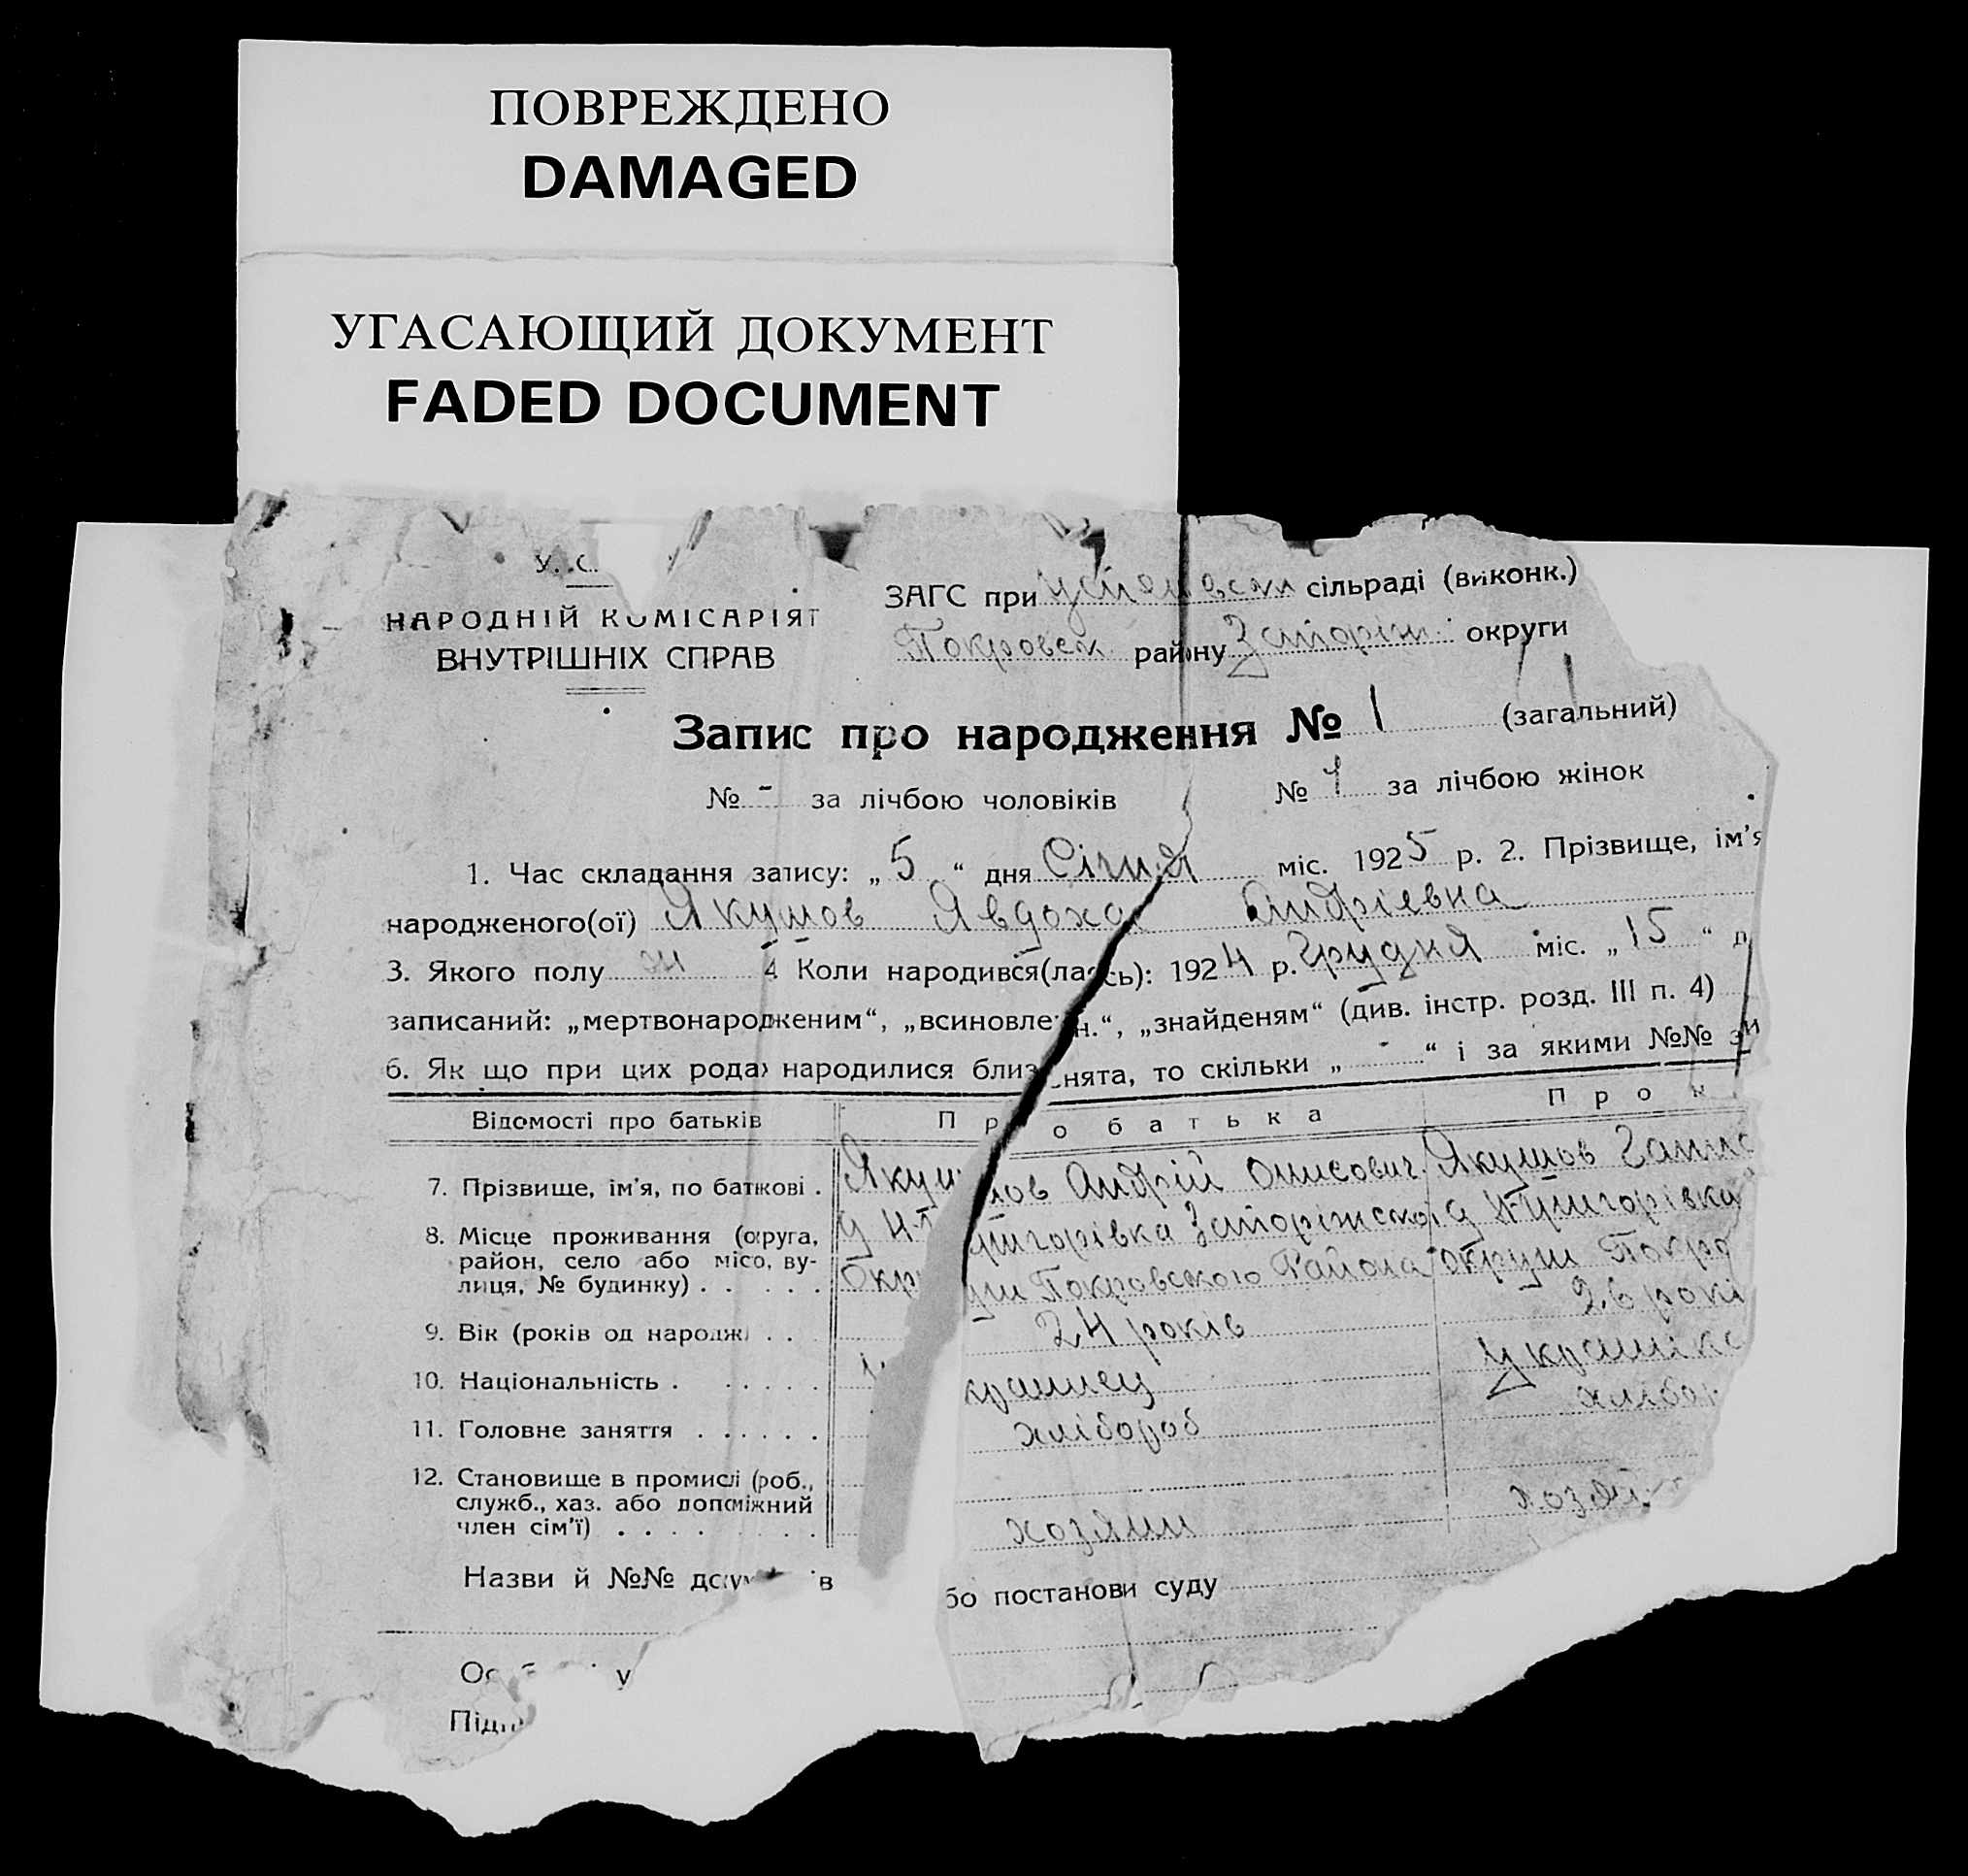 ПОВРЕЖДЕНО
DAMAGED
УГАСАЮЩИЙ ДОКУМЕНТ
FADED DOCUMENT
У. С.
НАРОДНІЙ КОМІСАРІЯТ
ВНУТРІШНІХ СПРАВ
ЗАГС при сільраді (виконк.)
Покровськ району Запоріж. округи
Запис про народження № 1 (загальний)
№ - за лічбою чоловіків № 1 за лічбою жінок
1. Час складання запису: „ 5 “ дня Січня міс. 1925 р. 2. Прізвище, ім'я
народженого(ої) Якушов Явдоха Андріевна
3. Якого полу ж 4 Коли народився(лась): 1924 р. Грудня міс. „ 15 “ д
записаний: „мертвонародженим“, „всиновлен.“, „знайденям“ (див. інстр. розд. III п. 4)
6. Як що при цих родах народилися близнята, то скільки „ - “ і за якими №№ з
Відомості про батьків Про батька Про
7. Прізвище, ім'я, по батькові . Якушов Андрій Онисович Якушов Ганна
8. Місце проживання (округа, у Н-Григорівка Запоріжскоі у Н-Григорівка
район, село або місо, ву-
лиця, № будинку) . . . . . Округи Покровського Района округи Покро
9. Вік (років од народж . . . 24 років 26 рокі
10. Національність . . . . . . країнец Українк
11. Головне заняття . . . . . . хлібороб хлібор
12. Становище в промислі (роб.,
служб., хаз. або допоміжний
член сім'ї) . . . . . . . . хозяин хозяй
Назви й №№ бо постанови суду